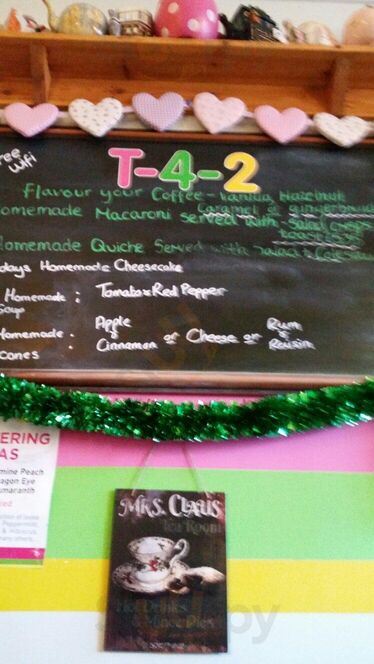 Free
wifi
T-4-2
Flavour your Coffee - Vanilla Hazelnut
Caramel or gingerbread
omemade Macaroni served with - Salad crisps
Homemade Quiche Served with Salad & Coleslaw
days Homemade Cheesecake
Homemade : Tomato & Red Pepper
Soup
Homemade .
cones
Apple
&
Cinnamon or Cheese or Rum
&
Raisin
ERING
AS
mine Peach
agon Eye
umaranth
MRS. CLAUS
Tea Room
Hot Drinks
& Mince Pies